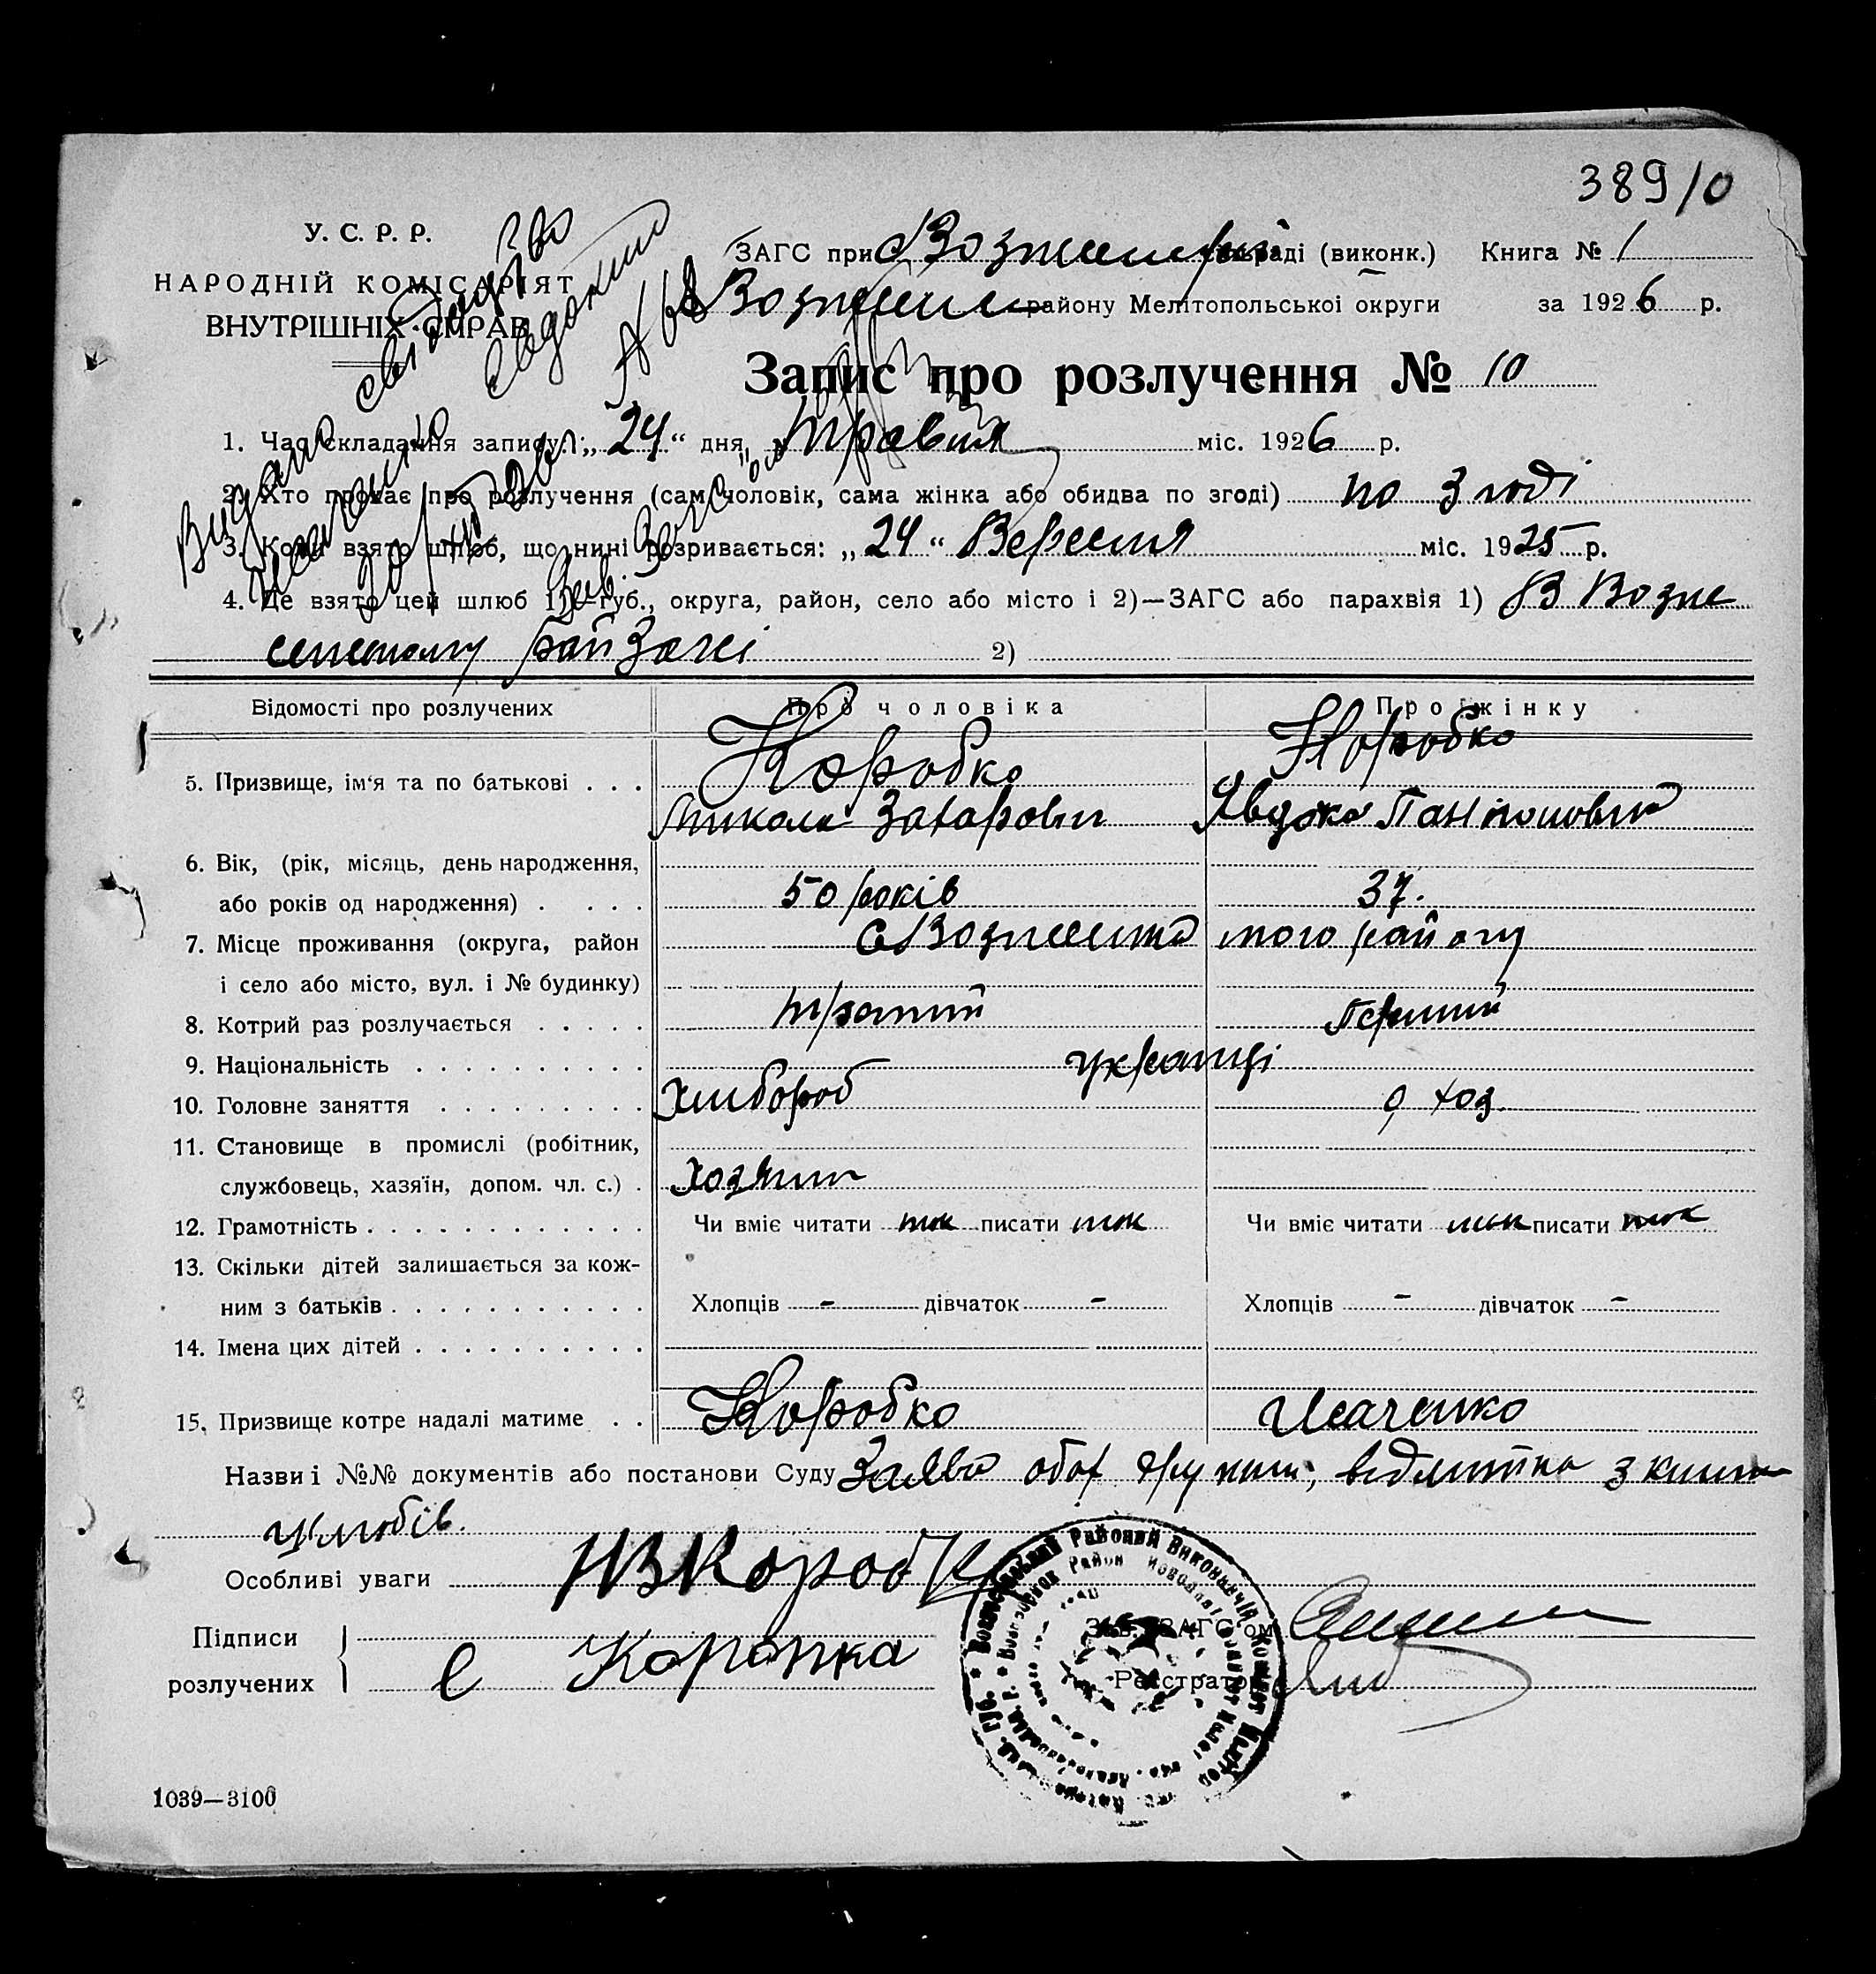 389/10
У. С. Р. Р.
НАРОДНІЙ КОМІСАРІЯТ
ВНУТРІШНІХ СПРАВ
ЗАГС при раді (виконк.) Книга № 1
району Мелітопольської округи за 1926 р.
Видано свідоцтво
Исаченко Євдокии
№ 68
Запис про розлучення № 10
1. Час складання запису: „24“ дня, Травня міс. 1926 р.
2. Хто прохає про розлучення (сам чоловік, сама жінка або обидва по згоді) по згоді
3. Коли взято шлюб, що нині розривається: „24“ Вересня міс. 1925 р.
4. Де взято цей шлюб 1)—губ., округа, район, село або місто і 2)—ЗАГС або парахвія 1) В Возне
сенському райЗагсі 2)
Відомості про розлучених Про чоловіка Про жінку
5. Призвище, ім'я та по батькові . . . Коробко Коробко
Микола Захарович Явдоха
6. Вік, (рік, місяць, день народження,
або років од народження) . . . . 50 років 37.
7. Місце проживання (округа, район с Вознесенка того району
і село або місто, вул. і № будинку)
8. Котрий раз розлучається . . . . . третий Перший
9. Національність . . . . . . . . . . українці
10. Головне заняття . . . . . . . . . Хлибороб д хоз.
11. Становище в промислі (робітник,
службовець, хазяїн, допом. чл. с.) . Хозяин
12. Грамотність . . . . . . . . . . . . Чи вміє читати так писати так Чи вміє читати так писати так
13. Скільки дітей залишається за кож-
ним з батьків . . . . . . . . . . . Хлопців - дівчаток - Хлопців - дівчаток -
14. Імена цих дітей . . . . . . . . . .
15. Призвище котре надалі матиме . . Коробко Исаченко
Назви і №№ документів або постанови Суду Заява обох друж., відмітка з книги
шлюбів.
Особливі уваги НЗКоробко
Підписи Зав. ЗАГС'ом
розлучених Е Коропка Реєстратор
Районний Виконавчий Комітет
1039—3100